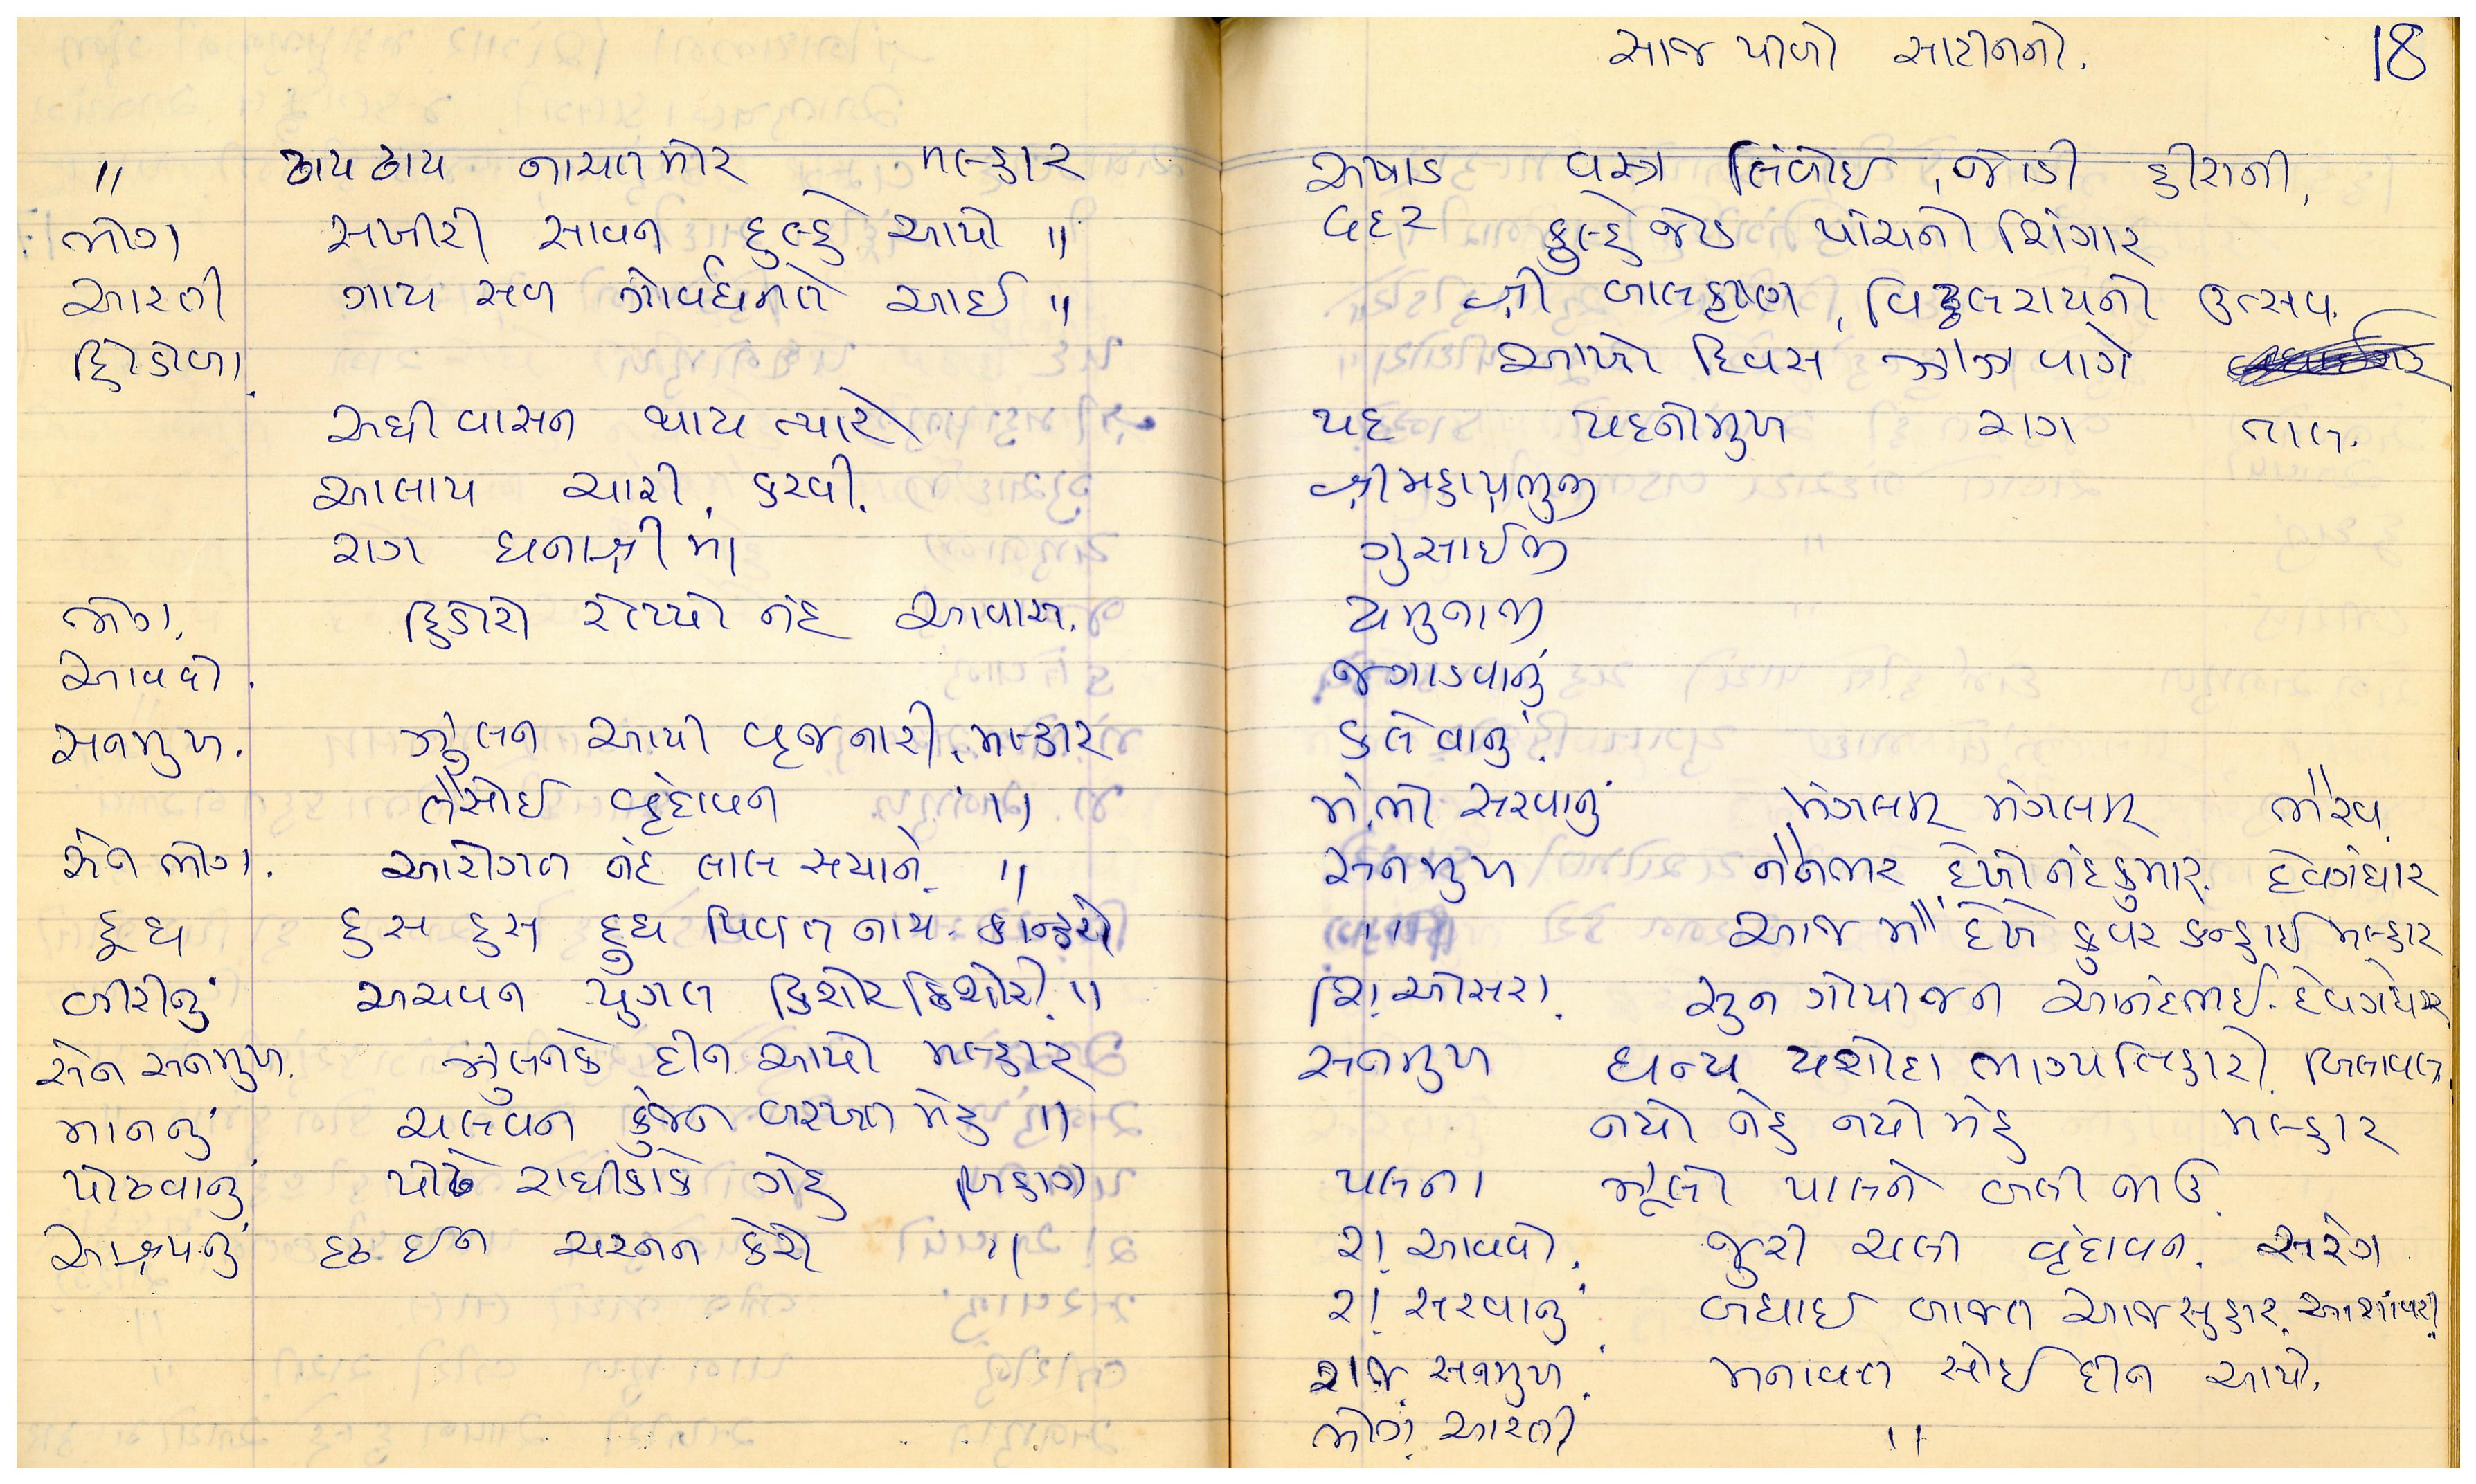 〃 ઠાય ઠાય નાચત મોર મલ્હાર
ભોગ સખીરી સાવન દુલ્હે આયો 〃
આરતી ગાય સબ ગોર્વધનતે આઈ 〃
હિંડોળા.
અધીવાસન થાય ત્યારે
આલાપ ચારી કરવી.
રાગ ધનાશ્રીમાં
ભોગ. હિંડોરો રોપ્યો નંદ આવાસ.
આવવો.
સનમુખ. ઝુલન આયી વૃજનારી. મલ્હાર
તૈસોઈ વૃંદાવન 〃
સેન ભોગ. આરોગત નંદ લાલ સયાને. 〃
દૂધ હસ હસ દુધ પિવત નાથ. કાન્હરો
બીરીનું અચવન યુગલ કિશોર કિશોરી. 〃
સેન સનમુખ. ઝુલનકે દીન આયો મલ્હાર
માનનું ચલવન કુંજન બરખત મેહ 〃
પોઢવાનું પોઢે રાધીકાકે ગેહ બિહાગ
આશ્રયનું દ્રઢ ઈન ચરનન કેરો 〃
સાજ પીળો સાટીનનો. 18
અષાડ વસ્ત્ર લિંબોઈ, જોડી હીરાની,
વદ ૨ કુલ્હે જોડ પાંચનો શિંગાર
શ્રી બાલકૃષ્ણ, વિઠ્ઠલરાયનો ઉત્સવ.
આખો દિવસ ઝાંઝ વાગે
પદ પદનોમુખ રાગ તાલ.
શ્રીમહાપ્રભુજી
ગુસાઈજી
યમુનાજી
જગાડવાનું
કલેવાનું
મં.ભો સરવાનું મંગલમ્ મંગલમ્ ભૈરવ.
સનમુખ નૈનભર દેખો નંદકુમાર. દેવગંધાર
〃 આજ મૈં દેખે કુવર કન્હાઈ મલ્હાર
શિં. ઓસરા. સુન ગોપીજન આનંદભઈ. દેવગંધાર
સનમુખ ધન્ય યશોદા ભાગ્ય તિહારો. બિલાવલ
નયો નેહ નયો મેહ મલ્હાર
પલના ઝૂલો પાલને બલી જાઉ.
રા. આવવો. જુરી ચલી વૃંદાવન. સારંગ
રા. સરવાનું બધાઈ બાજત આજ સુહાઈ. આશાવરી
રાજ. સનમુખ. મનાવત સોઈ દીન આયો.
ભોગ. આરતી 〃